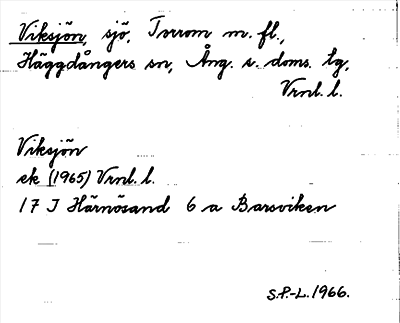 Viksjön, sjö, Torrom m. fl.,
Häggdångers sn, Ång. s. doms. lg,
Vrnl. l.
Viksjön
ek (1965) Vrnl. l.
17 I Härnösand 6 a Barsviken
S.P.-L. 1966.